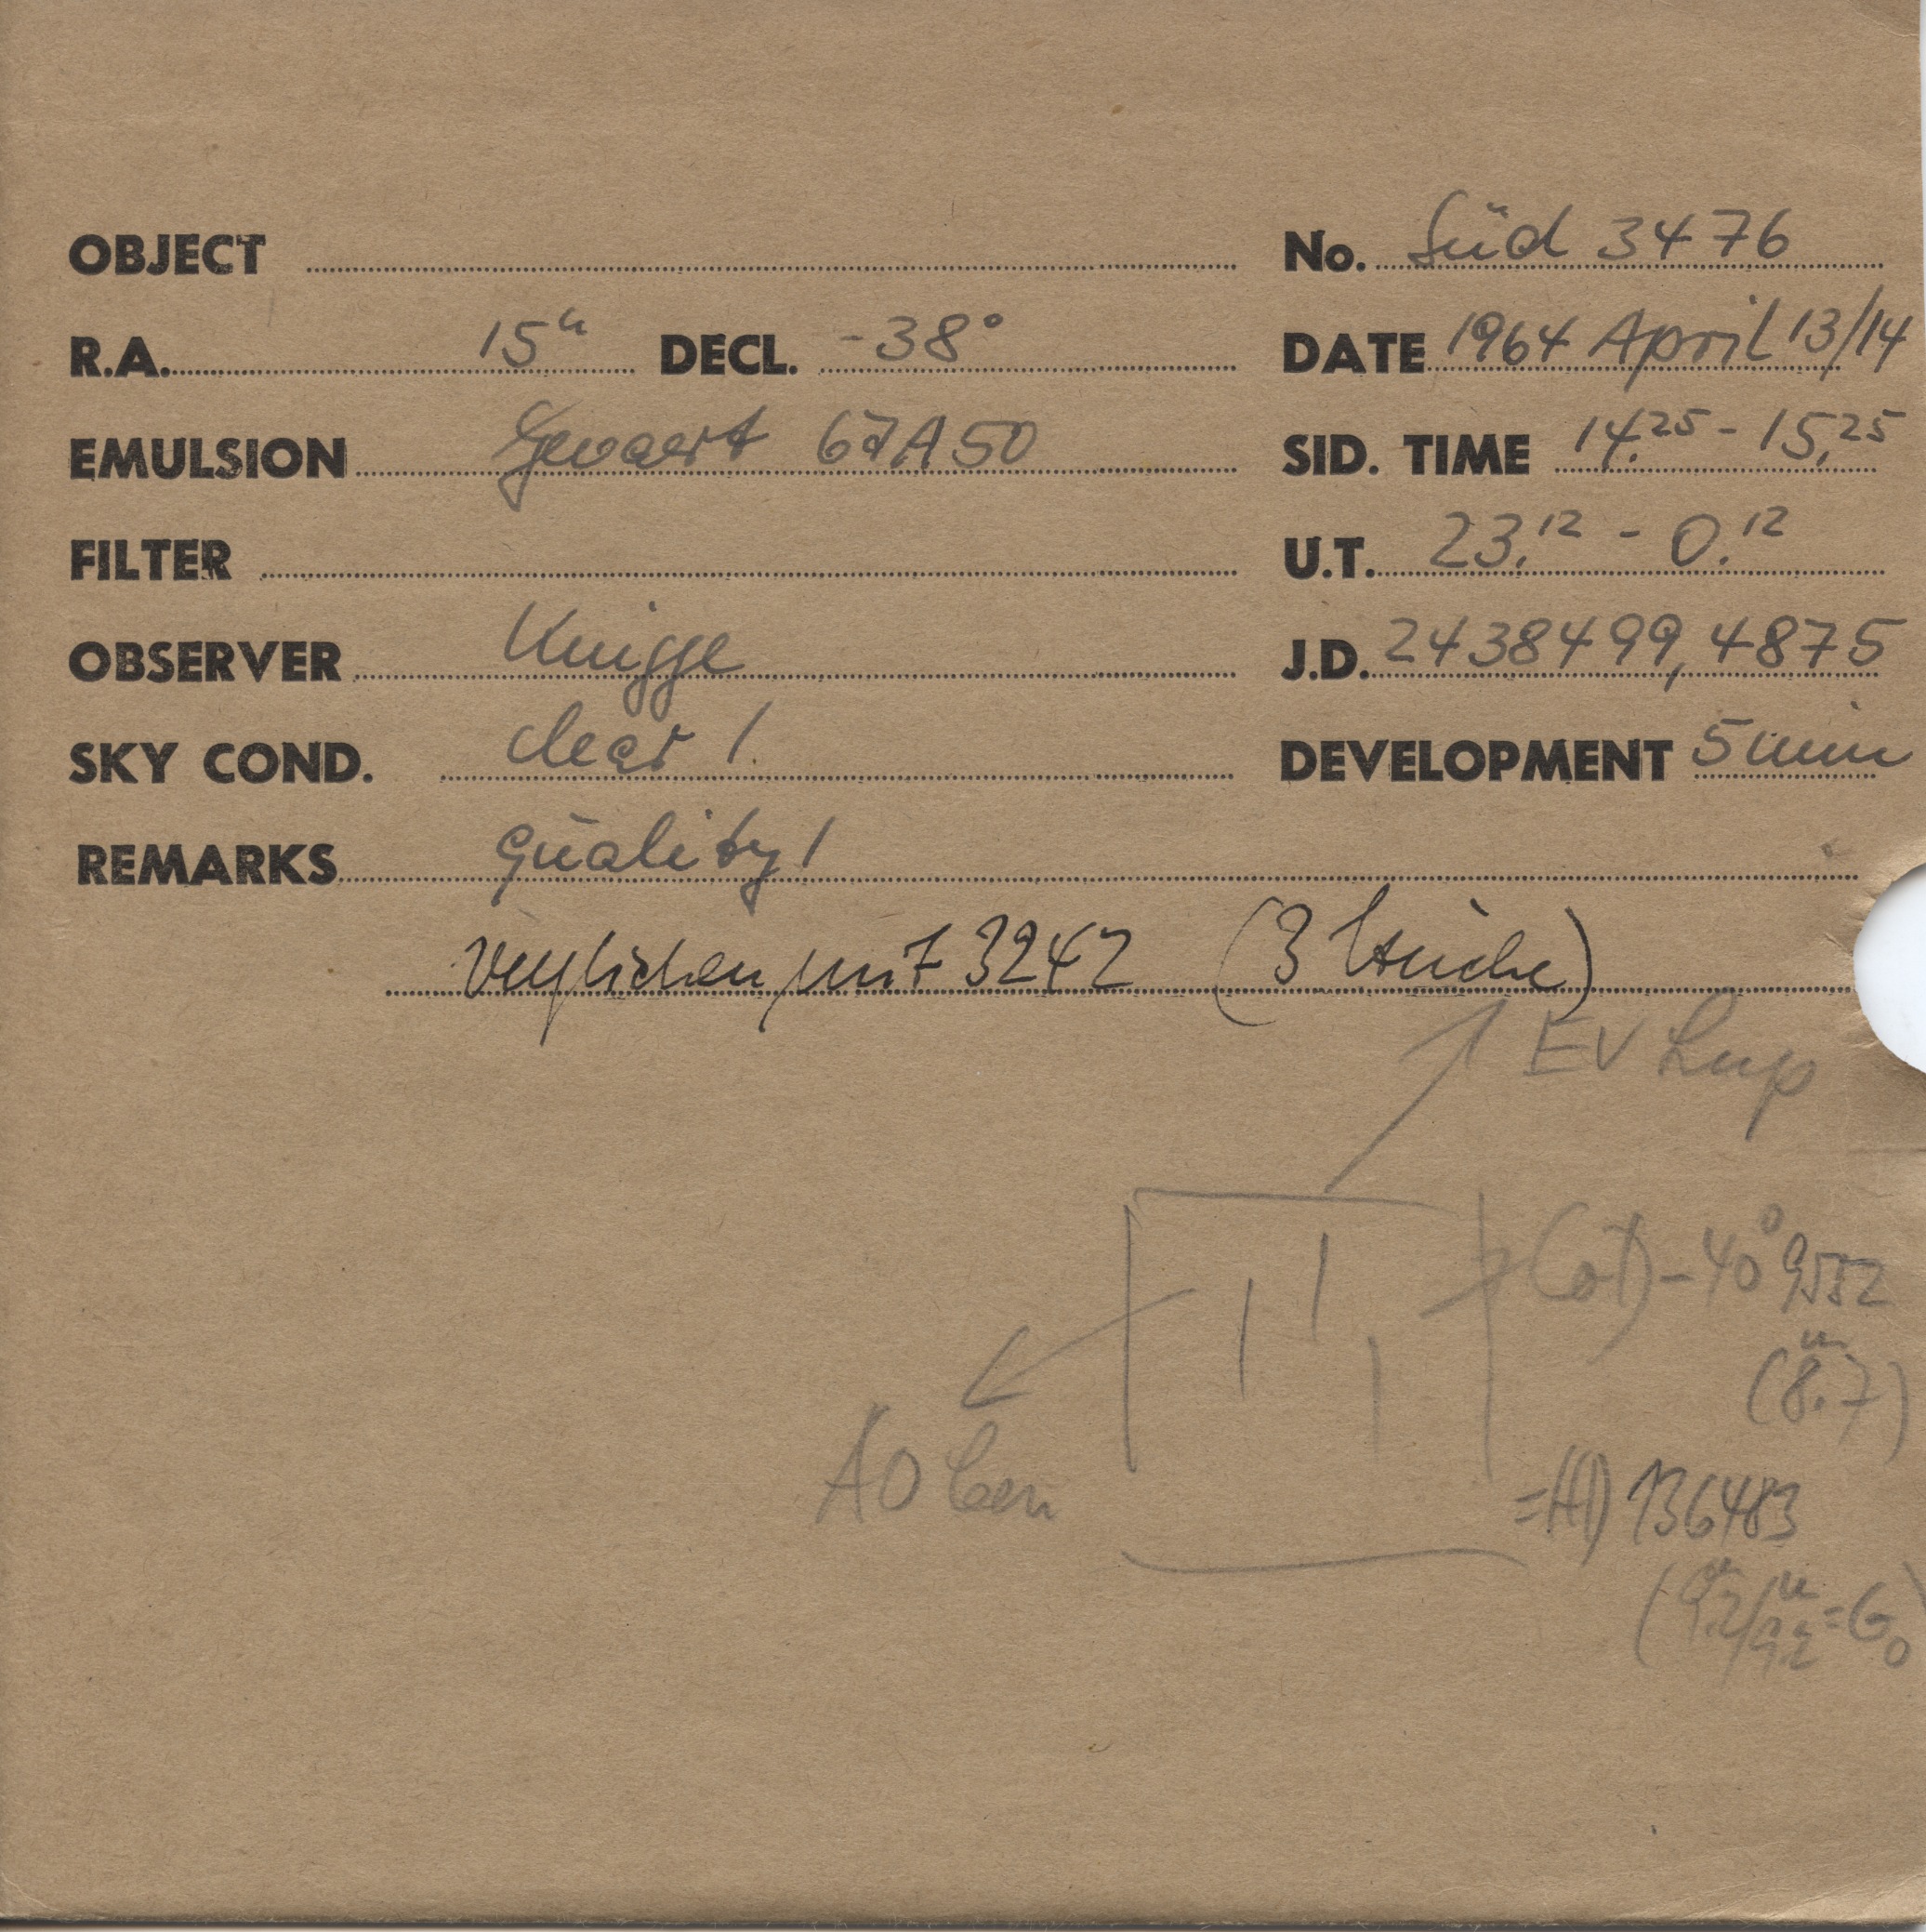 OBJECT No. Süd 3476
R.A. 15ʰ DECL. -38°
DATE 1964 April 13/14
EMULSION Gevaert 67A50
SID. TIME 14.25 - 15.25
FILTER
U.T. 23.12 - 0.12
OBSERVER Knigge
J.D. 2438499,4875
SKY COND. clear 1.
DEVELOPMENT 5 min
REMARKS Quality 1
verglichen mit 3242 (3 Striche)
EV Lup
-40° 9552
(8.7ᵐ)
A0 Cen
=HD 136483
=G0